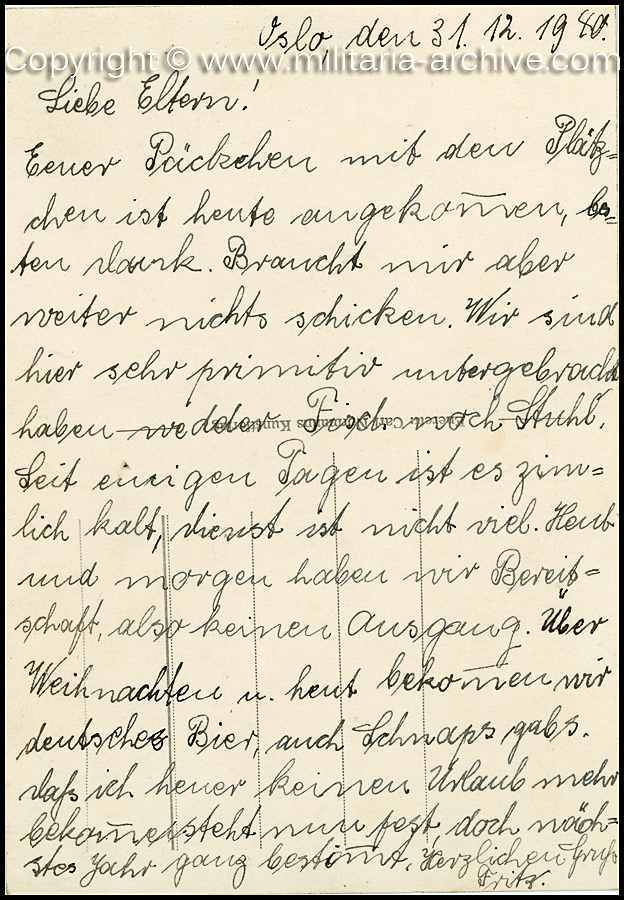 Oslo, den 31. 12. 1940.
Copyright © www.militaria-archive.com
Liebe Eltern!
Eeuer Päckchen mit den Plätz-
chen ist heute angekom̄en, bes-
ten Dank. Braucht mir aber
weiter nichts schicken. Wir sind
hier sehr primitiv untergebracht
haben wedder Tisch noch Stuhl.
Eneret: Carl Normanns Kunstforlag
Seit einigen Tagen ist es zim-
lich kalt, dienst ist nicht viel. Heut
und morgen haben wir Bereit-
schaft, also keinen Ausgang. Über
Weihnachten u. heut bekom̄en wir
deutsches Bier, auch Schnaps gabs.
daß ich heuer keinen Urlaub mehr
bekom̄e steht nun fest, doch näch-
stes Jahr ganz bestim̄t. Herzlichen Gruß
Fritz.